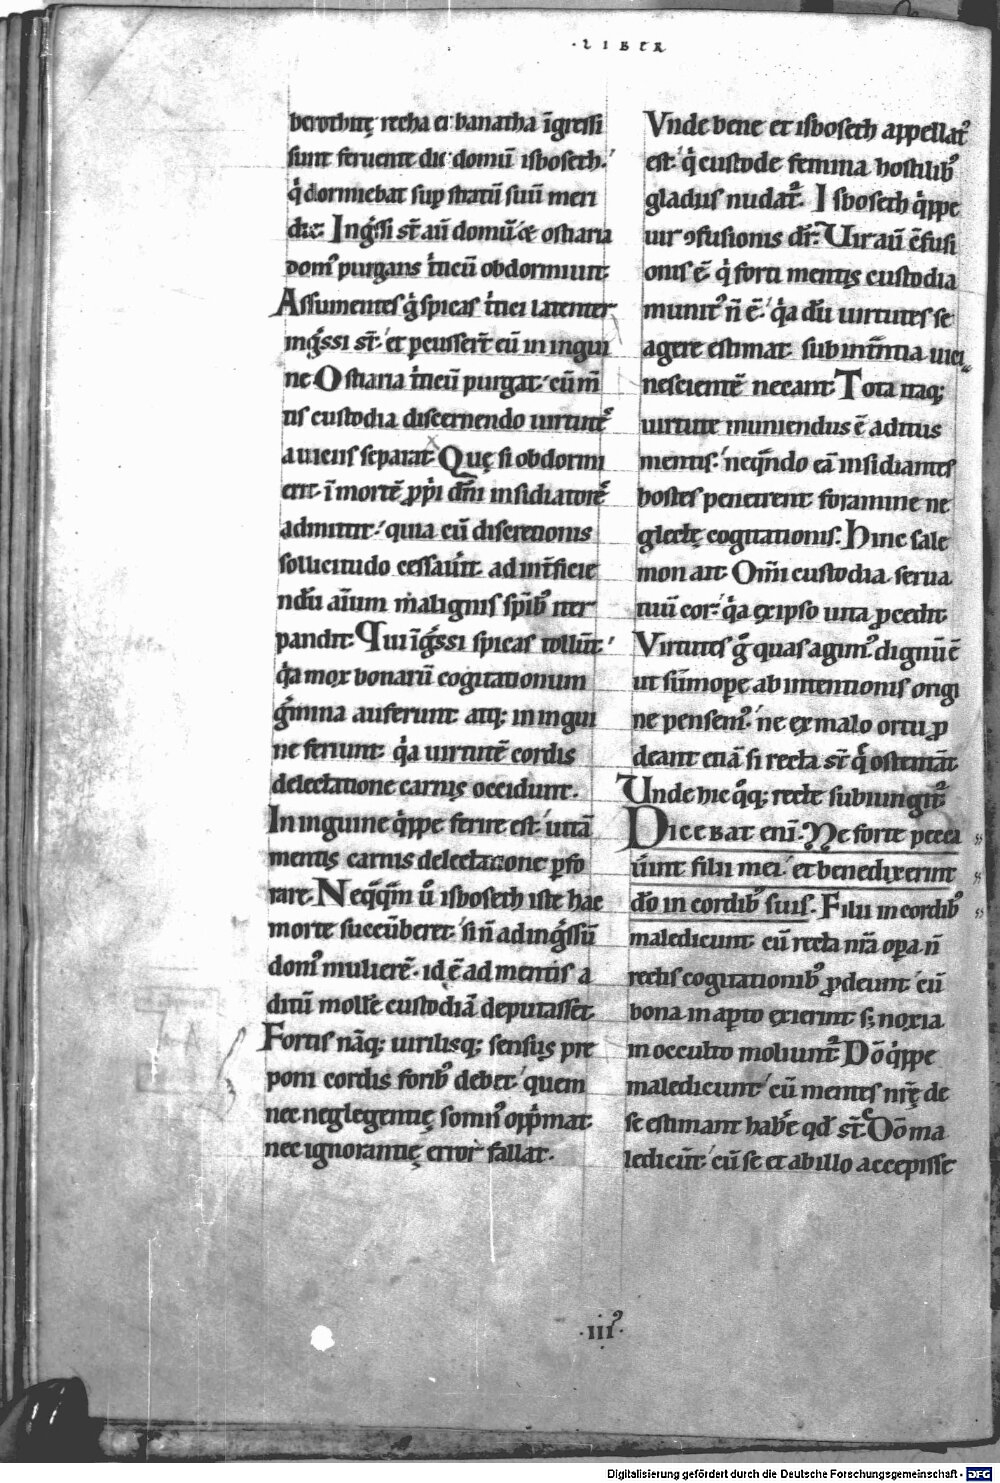 ·LIBER
berothitę recha et banatha īgressi
sunt feruente die domū isboseth.
q̇ dormiebat sup stratū suū meri
die. Ingṡsi st̄ aū domū. & ostiaria
dom᷒ purgans ṫticū obdormiuit.
Assumentes q̇ spicas ṫtici latenter
ingṡsi st̄. et pcusser̄t eū in ingui
ne. Ostiaria ṫticū purgat. cū m̄
tis custodia discernendo uirtutes
a uiciis separat. Quę si obdormi
erit. ī mortē ꝓpi dn̄i insidiatores
admittit. quia cū discretionis
sollicitudo cessauit. ad int̄ficie
ndū aīum malignis sp̄ib᷒ iter
pandit. Qui īgṡsi spicas tollūt.
q̇a mox bonarū cogitationum
gṁina auferunt. atq; in ingui
ne feriunt. q̇a uirtutē cordis
delectatione carnis occidunt.
In inguine q̇ppe ferire est. uitā
mentis carnis delectacione ꝑfo
rare. Neq̄q̄m ů isboseth iste hac
morte succūberet. si n̄ ad ingṡsū
dom᷒ mulierē. id ē ad mentis a
ditū mollē custodiā deputasset.
Fortis nāq; uirilisq; sensus pre
poni cordis forib᷒ debet. quem
nec neglegentię somn᷒ opp̍mat.
nec ignorantię error fallat.
Vnde bene et isboseth appellat᷒
est. q̇ custode femina hostilib᷒
gladiis nudat᷒. Isboseth q̇ppe
uir ꝯfusionis dr̄. Uir aū ꝯfusi
onis ē. q̇ forti mentis custodia
munit᷒ n̄ ē. q̇a dū uirtutes se
agere estimat. subintrātia uici,,
nescientē necant. Tota itaq;
uirtute muniendus ē aditus
mentis. neq̄ndo eā insidiantes
hostes penetrent foramine ne
glectę cogitationis. Hinc sale
mon ait. Om̄i custodia serua
tuū cor. q̇a ex ipso uita ꝓcedit.
Virtutes g̊ quas agim᷒ dignū ē
ut sūmope ab intentionis origi
ne pensem᷒. ne ex malo ortu ꝓ
deant etiā si recta st̄ q̄ ostentāt.
Unde hic q̊q; recte subiungit᷒.
Dicebat enī. Ne forte pecca
uīnt filii mei. et benedixerint
dō in cordib᷒ suis. Filii in cordib᷒
maledicunt. cū recta nr̄a opa n̄
rectis cogitationib᷒ ꝓdeunt. cū
bona in apto exierint. s; noxia
in occulto moliunt᷒. Dō q̇ppe
maledicunt. cū mentes nr̄ę de
se estimant habe qd̄ st̄. Dō ma
ledicūt. cū se et ab illo accepisse
·iii᷒·
Digitalisierung gefördert durch die Deutsche Forschungsgemeinschaft - DFG